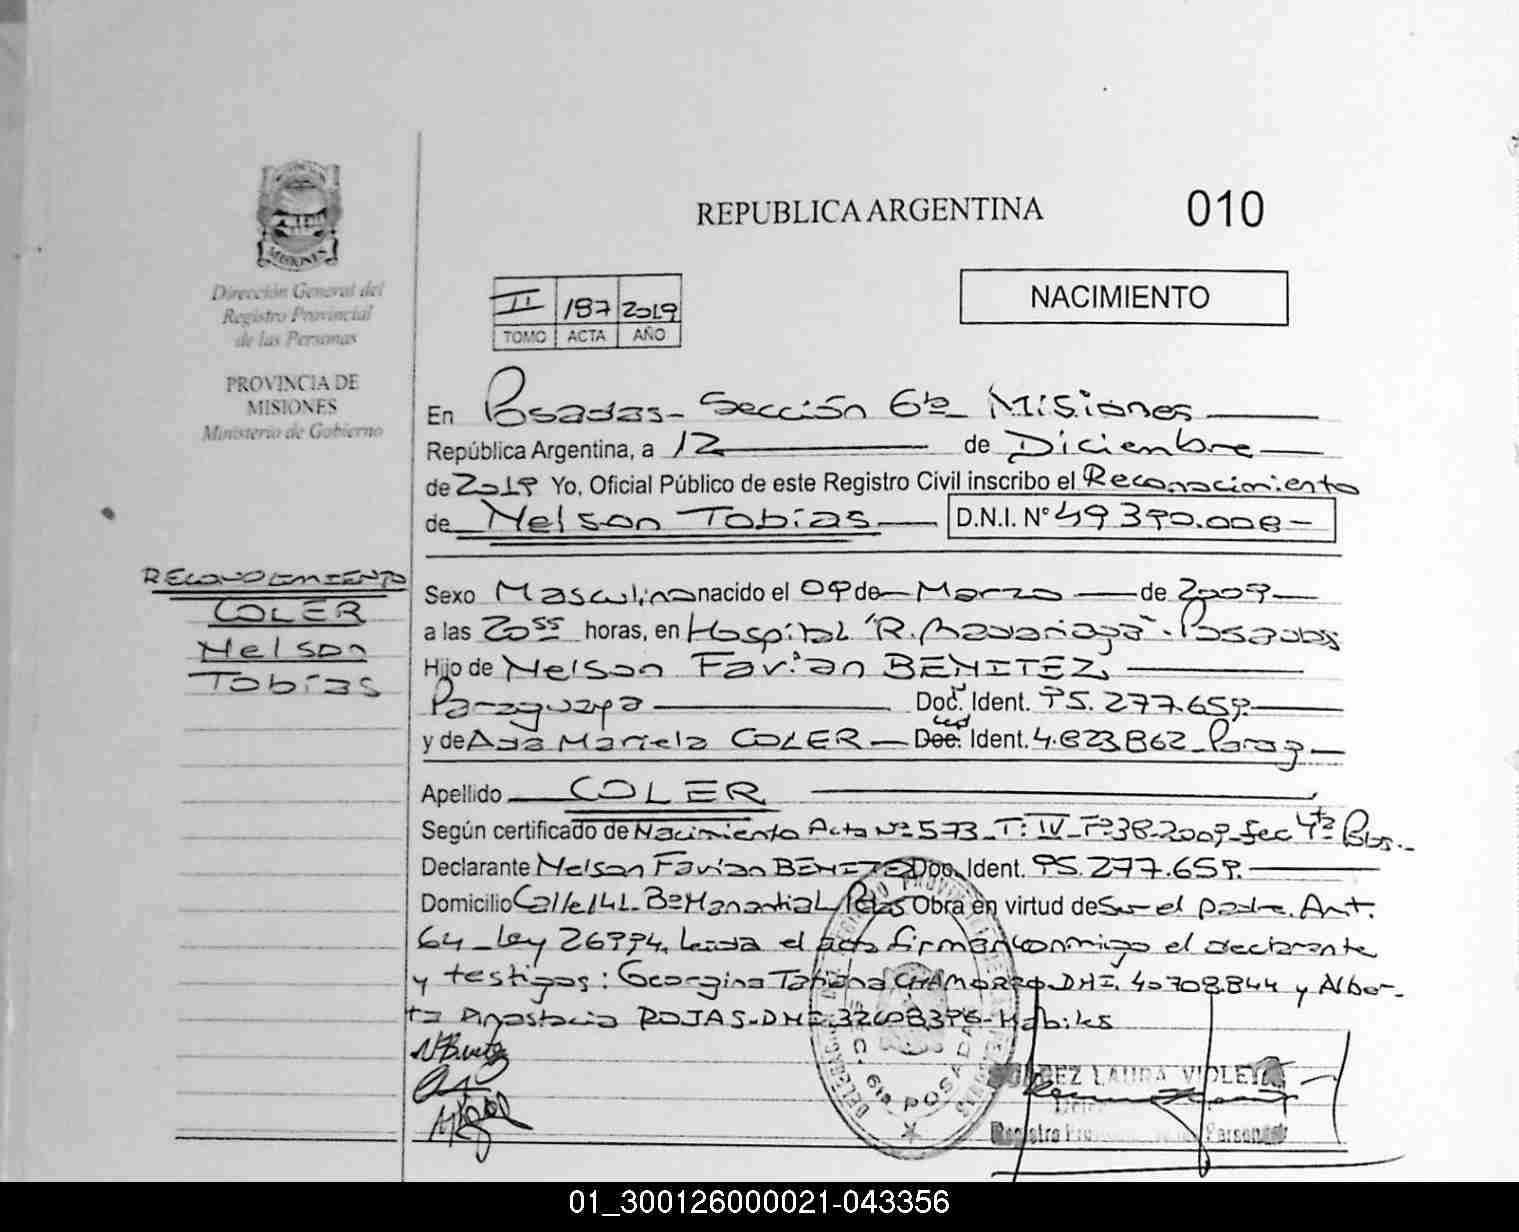 REPUBLICA ARGENTINA
010
MISIONES
Dirección General del
Registro Provincial
de las Personas
PROVINCIA DE
MISIONES
Ministerio de Gobierno
II 187 2019
TOMO ACTA AÑO
NACIMIENTO
En Posadas - Sección 6ta Misiones
República Argentina, a 12 de Diciembre
de 2019 Yo, Oficial Público de este Registro Civil inscribo el Reconocimiento
de Nelson Tobías D.N.I. N° 49.390.008-
RECONOCIMIENTO
COLER
Nelson
Tobías
Sexo Masculino nacido el 09 de Marzo de 2009
a las 20 55 horas, en Hospital "R. Madariaga". Posadas
Hijo de Nelson Favian BENITEZ,
Paraguaya Doc. Ident. 95.277.659.
y de Ada Mariela COLER Doc. Ident. 4.823.862 Parag
Apellido COLER
Según certificado de Nacimiento Acta Nº 573 T: IV Fº 38-2009 Sec 4ta Pdas.
Declarante Nelson Favian BENITEZ Doc. Ident. 95.277.659.
Domicilio Calle 141. Bº Manantial Pdas Obra en virtud de Ser el padre. Art.
64 - Ley 26994. Leída el acta firman conmigo el declarante
y testigos: Georgina Tatiana CHAMORRO. DNI. 40708.844 y Alber-
ta Anastacia ROJAS - DNI. Hábiles
6ta POSADAS
LAURA VIOLETA
Registro